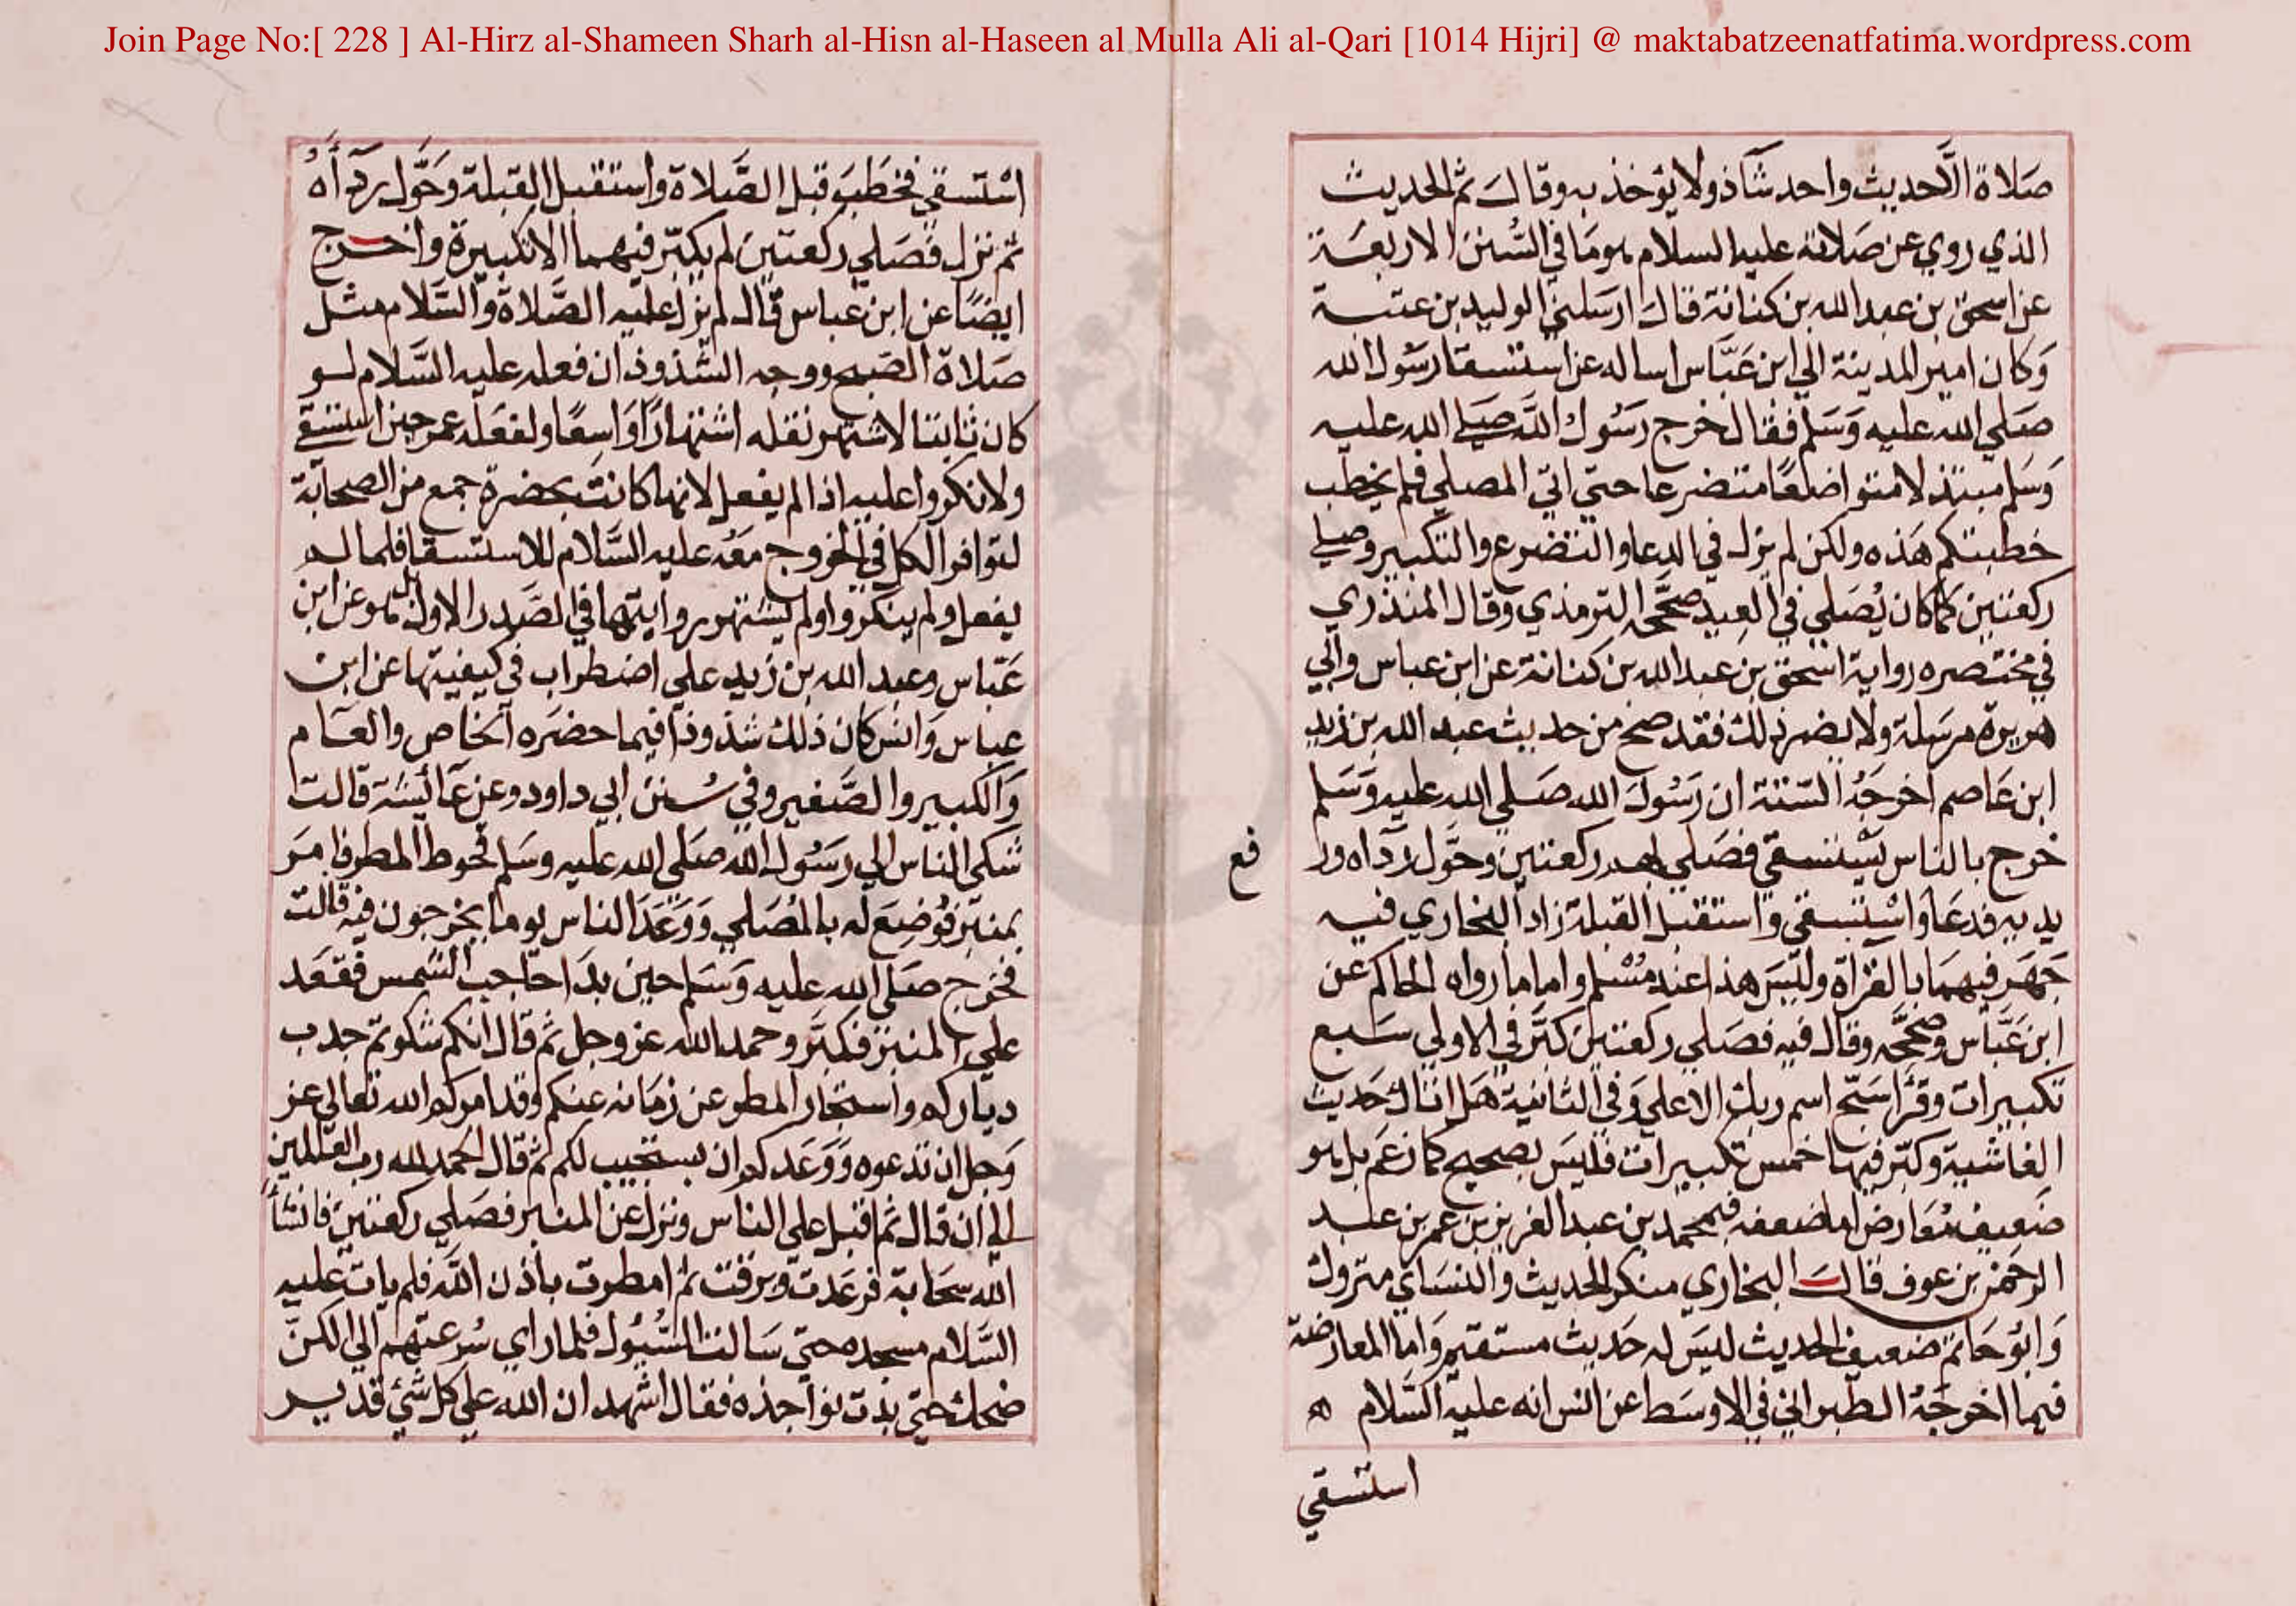 Join Page No:[ 228 ] Al-Hirz al-Shameen Sharh al-Hisn al-Haseen al Mulla Ali al-Qari [1014 Hijri] @ maktabatzeenatfatima.wordpress.com
صَلاة الَّا حديث واحد شاذ ولا يؤخذ به وقال ثم الحديث
الذي روي عن صَلاته عليه السلام هو مَا في السُّنن الاربعَة
عن اسحق بن عبد الله بن كنانة قال ارسَلني الوليد بن عتبة
وَكان امير المدينة الي ابن عَبَّاس اساله عن استسقا رسُول الله
صَلي الله عليه وَسَلم فقال خرج رَسُول اللَّه صَلي الله عليه
وَسَلم مبتذلا متواضعًا متضرعا حتى اتي المصلي فلم يخطب
خطبتكم هَذه ولكن لم يزل في الدعا والتضرع والتكبير وصلي
ركعتين كما كان يُصَلي في العِيد صَحَّحه الترمذي وقال المنذري
في مختصره رواية اسحق بن عبد الله بن كنانة عن ابن عباس وابي
هريرة مرسَلة ولا يضر ذلك فقد صح من حديث عبد الله بن زيد
ابن عَاصم اخرجَهُ الستة ان رَسُول الله صَلي الله عليه وَسَلم
خرج بالناس يَسْتسقي فصَلي بهم ركعتين وحَوَّل رداه ور
فع
يديه فدعَا وَاسْتسقي وَاستقبل القبلة زاد البخاري فيه
جَهَر فيهمَا بالقرأة وليسَ هذا عند مُسْلم واما ما رواه الحاكم عن
ابن عَبَّاس وصَحَّحَه وقال فيه فصَلي ركعتين كبَّر في الاولي سَبع
تكبيرات وقرَأ سَبّح اسم ربك الاعلي وَفي الثانية هَل اتاك حَديث
الغاشية وكبّر فيها خمس تكبيرات فليسَ بصحيح كما زعَم بل هو
ضَعيف مُعَارض اما ضعفه فبمحمد بن عبد العزيز بن عمر بن عبد
الرحمن بن عوف قال البخاري منكر الحديث والنسَاي متروك
وَابُو حَاتم ضعيف الحديث ليسَ له حَديث مستقيم وَاما المعارضة
فبما اخرجَهُ الطبراني في الاوسَط عن انس انه عليه السَّلام ه
استسقي
اسْتسقي فخطَبَ قبل الصَّلاة واستقبل القبلة وحَوَّل رداه
ثم نزل فصَلي ركعتين لم يكبّر فيهما الا تكبيرة واخرج
ايضًا عن ابن عباس قال لم يزد عليه الصَّلاة وَالسَّلام مثل
صَلاة الصبح ووجه الشذوذ ان فعله عليه السَّلام لو
كان ثابتا لاشتهر نقله اشتهارًا وَاسِعًا ولفعَله عمر حين استسقي
ولانكروا عليه اذا لم يفعل لانها كانت بحضرة جمع من الصحابة
لتوافر الكل في الخروج معَه عليه السَّلام للاستسقا فلما لم
يفعل ولم ينكروا ولم يشتهر روايتها في الصَّدر الاول بل هو عن ابن
عَبّاس وعبد الله بن زيد علي اضطراب في كيفيتها عن ابن
عباس وَانس كان ذلك شذوذا فيما حضرَه الخاص والعَام
وَالكبير والصَّغير وفي سُنن ابي داود وعن عَائشة قالت
شكي الناس الي رسَول الله صَلي الله عليه وسَلم قحوط المطر فامَر
بمنبر فوُضِعَ له بالمُصَلي وَوَعَدَ الناس يوما يخرجون فيه قالت
فخرج صَلي الله عليه وَسَلم حين بدَا حَاجب الشمس فقعَد
علي المنبر فكبَّر وحمد الله عز وجل ثم قال انكم شكوتم جدب
دياركم واستيخار المطر عن زمَانه عنكم وقد امركم الله تعالي عز
وَجل ان تدعوه وَوَعَدكم ان يستجيب لكم ثم قال الحمد لله رب العالمين
الي ان قال ثم اقبل علي الناس ونزل عن المنبر فصَلي ركعتين فانشأ
الله سحَابة فرعَدت وبرقت ثم امطرت باذن اللَّه فلم يات عليه
السَّلام مسجده حتى سَالت السُّيُول فلما راي سُرعتهم الي الكنّ
ضحك حتى بدت نواجذه فقال اشهد ان الله علي كل شَيء قدير